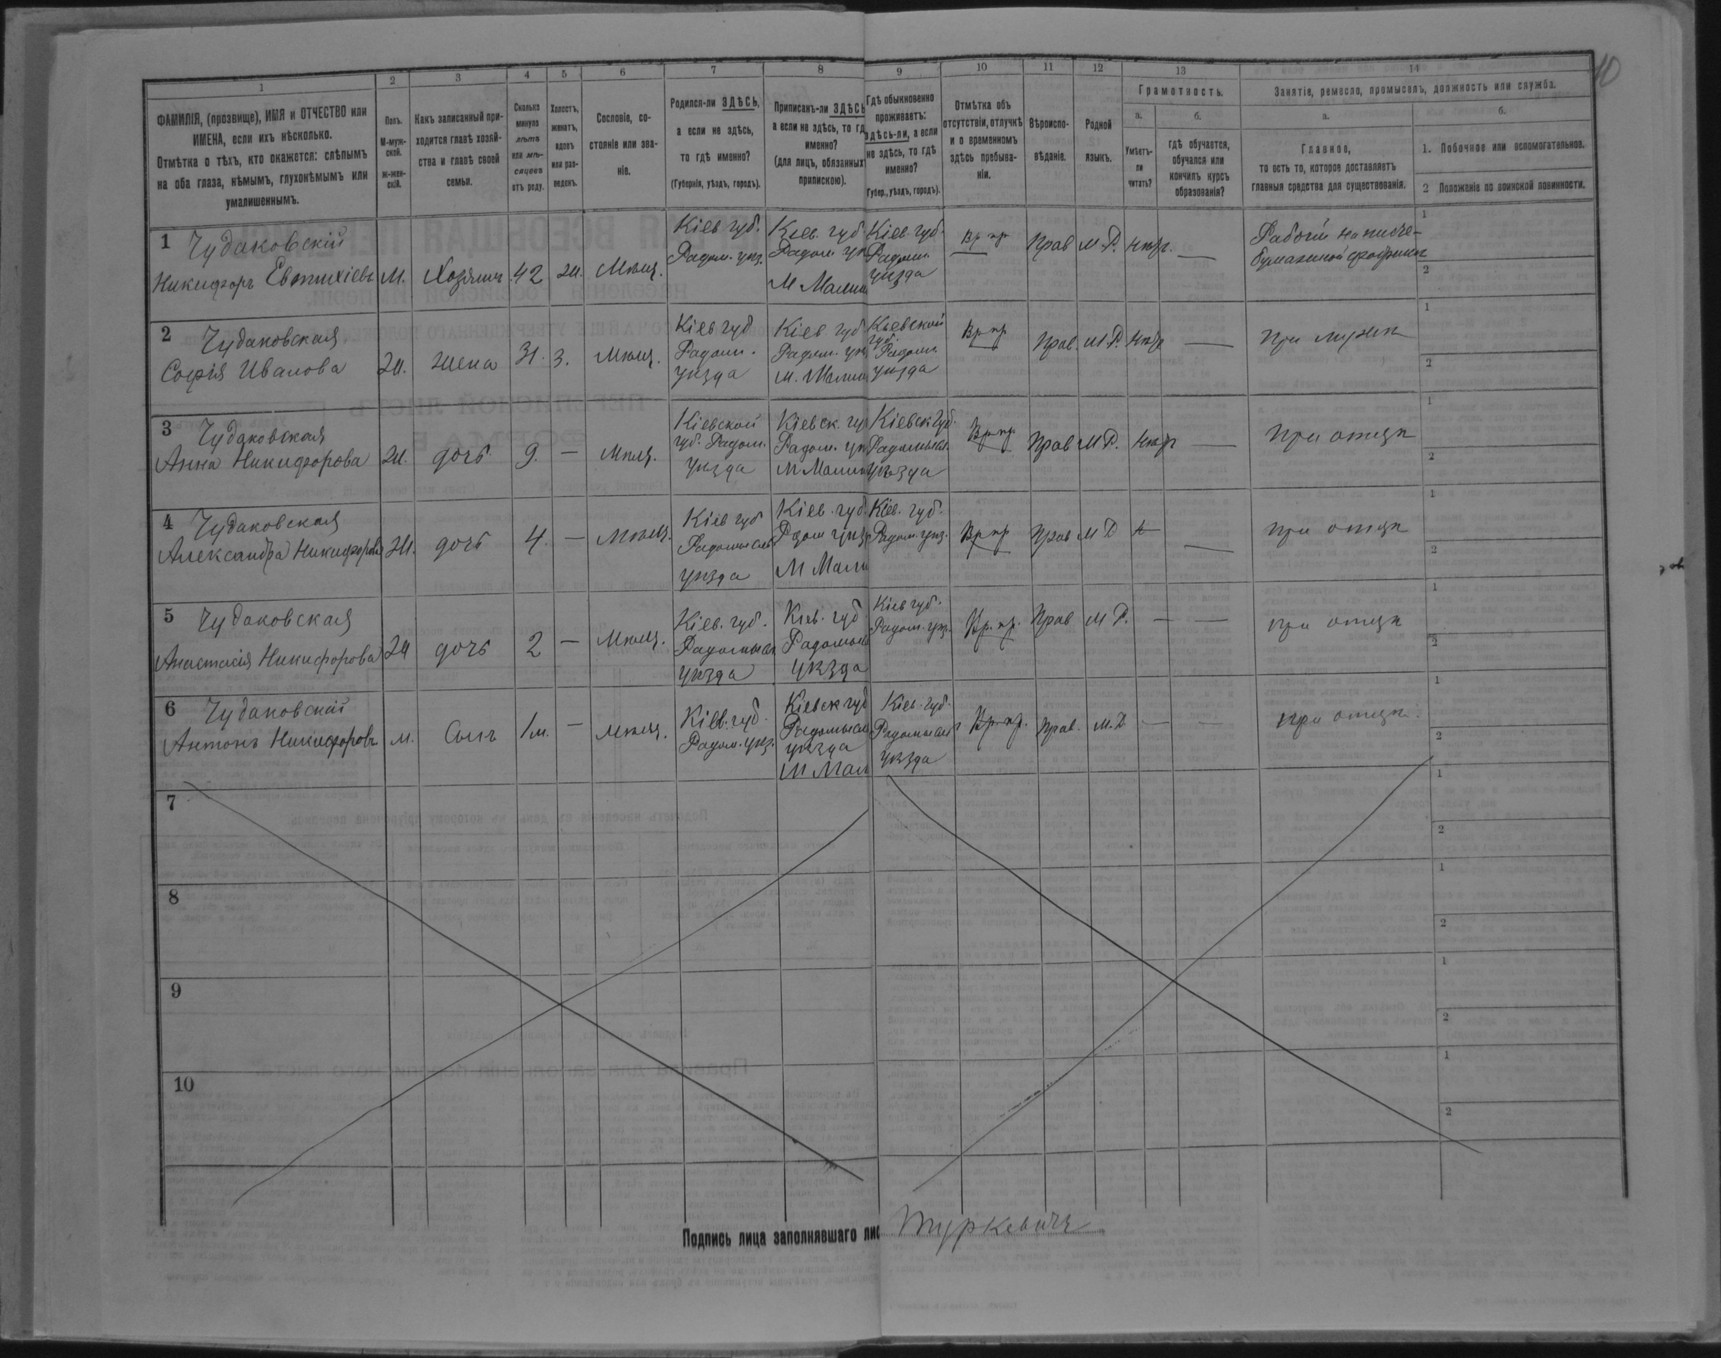 10
1
2
3
4
5
6
7
8
9
10
11
12
13
14
ФАМИЛІЯ, (прозвище), ИМЯ и ОТЧЕСТВО или
ИМЕНА, если ихъ нѣсколько.
Отмѣтка о тѣхъ, кто окажется: слѣпымъ
на оба глаза, нѣмымъ, глухонѣмымъ или
умалишеннымъ.
Полъ.
М-муж-
ской.
Ж-жен-
скій.
Какъ записанный при-
ходится главѣ хозяй-
ства и главѣ своей
семьи.
Сколько
минуло
лѣтъ
или мѣ-
сяцевъ
отъ роду.
Холостъ,
женатъ,
вдовъ
или раз-
веденъ.
Сословіе, со-
стояніе или зва-
ніе.
Родился-ли ЗДѢСЬ,
а если не здѣсь,
то гдѣ именно?
(Губернія, уѣздъ, городъ).
Приписанъ-ли ЗДѢСЬ
а если не здѣсь, то гд
именно?
(для лицъ, обязанных
припискою).
Гдѣ обыкновенно
проживаетъ:
здѣсь-ли, а если
не здѣсь, то гдѣ
именно?
Губер., уѣздъ, городъ).
Отмѣтка объ
отсутствіи, отлучкѣ
и о временномъ
здѣсь пребыва-
ніи.
Вѣроиспо-
вѣданіе.
Родной
языкъ.
Грамотность.
а.
Умѣетъ-
ли
читать?
б.
гдѣ обучается,
обучался или
кончилъ курсъ
образованія?
Занятіе, ремесло, промыселъ, должность или служба.
а.
Главное,
то есть то, которое доставляетъ
главныя средства для существованія.
б.
1. Побочное или вспомогательное.
2 Положеніе по воинской повинности.
1
Чудаковскій
Никифоръ Евтихіевъ
М.
Хозяинъ
42
Ж.
Мѣщ.
Кіев. губ.
Радом. уѣз.
Кіев. губ
Радом. уѣ
М Малин
Кіев. губ.
Радом.
уѣзда
Вр пр
Прав
М.Р.
Нѣтъ.
—
Рабочій на писче-
бумажной фабрикѣ
1
2
2
Чудаковская
Софія Иванова
Ж.
жена
31.
З.
Мѣщ.
Кіев губ
Радом.
уѣзда
Кіев. губ
Радом. уѣз
м. Малин
Кіевской
губ. Радом
уѣзда
Вр пр
Прав.
М.Р.
Нѣтъ
—
При мужѣ
1
2
3
Чудаковская
Анна Никифорова
Ж.
дочь
9.
—
Мѣщ.
Кіевской
губ. Радом.
уѣзда
Кіевск. гу
Радом. уѣ
М Малин
Кіевск губ.
Радомысл.
уѣзда
Вр пр.
Прав
М Р.
Нѣтъ
—
При отцѣ
1
2
4
Чудаковская
Александра Никифоров
Ж.
дочь
4.
—
Мѣщ.
Кіев губ
Радомысль
уѣзда
Кіев. губ
Радом уѣз
М Мали
Кіев. губ.
Радом. уѣз.
Вр пр
Прав
М Р
—
—
При отцѣ
1
2
5
Чудаковская
Анастасія Никифорова
Ж
дочь
2
—
Мѣщ.
Кіев. губ.
Радомысл
уѣзда
Кіев. губ
Радомыс
уѣзда
Кіев губ.
Радом. уѣз.
Вр. пр.
Прав
М Р.
—
—
При отцѣ
1
2
6
Чудаковскій
Антонъ Никифоровъ
М.
Сынъ
1 м.
—
Мѣщ.
Кіев. губ.
Радом. уѣз.
Кіевск губ
Радомысл
уѣзда
М Мал
Кіев. губ.
Радомысл
уѣзда
Вр. пр.
Прав.
М.Р
—
—
При отцѣ.
1
2
7
1
2
8
1
2
9
1
2
10
1
2
Подпись лица заполнявшаго лис
Туркевичъ